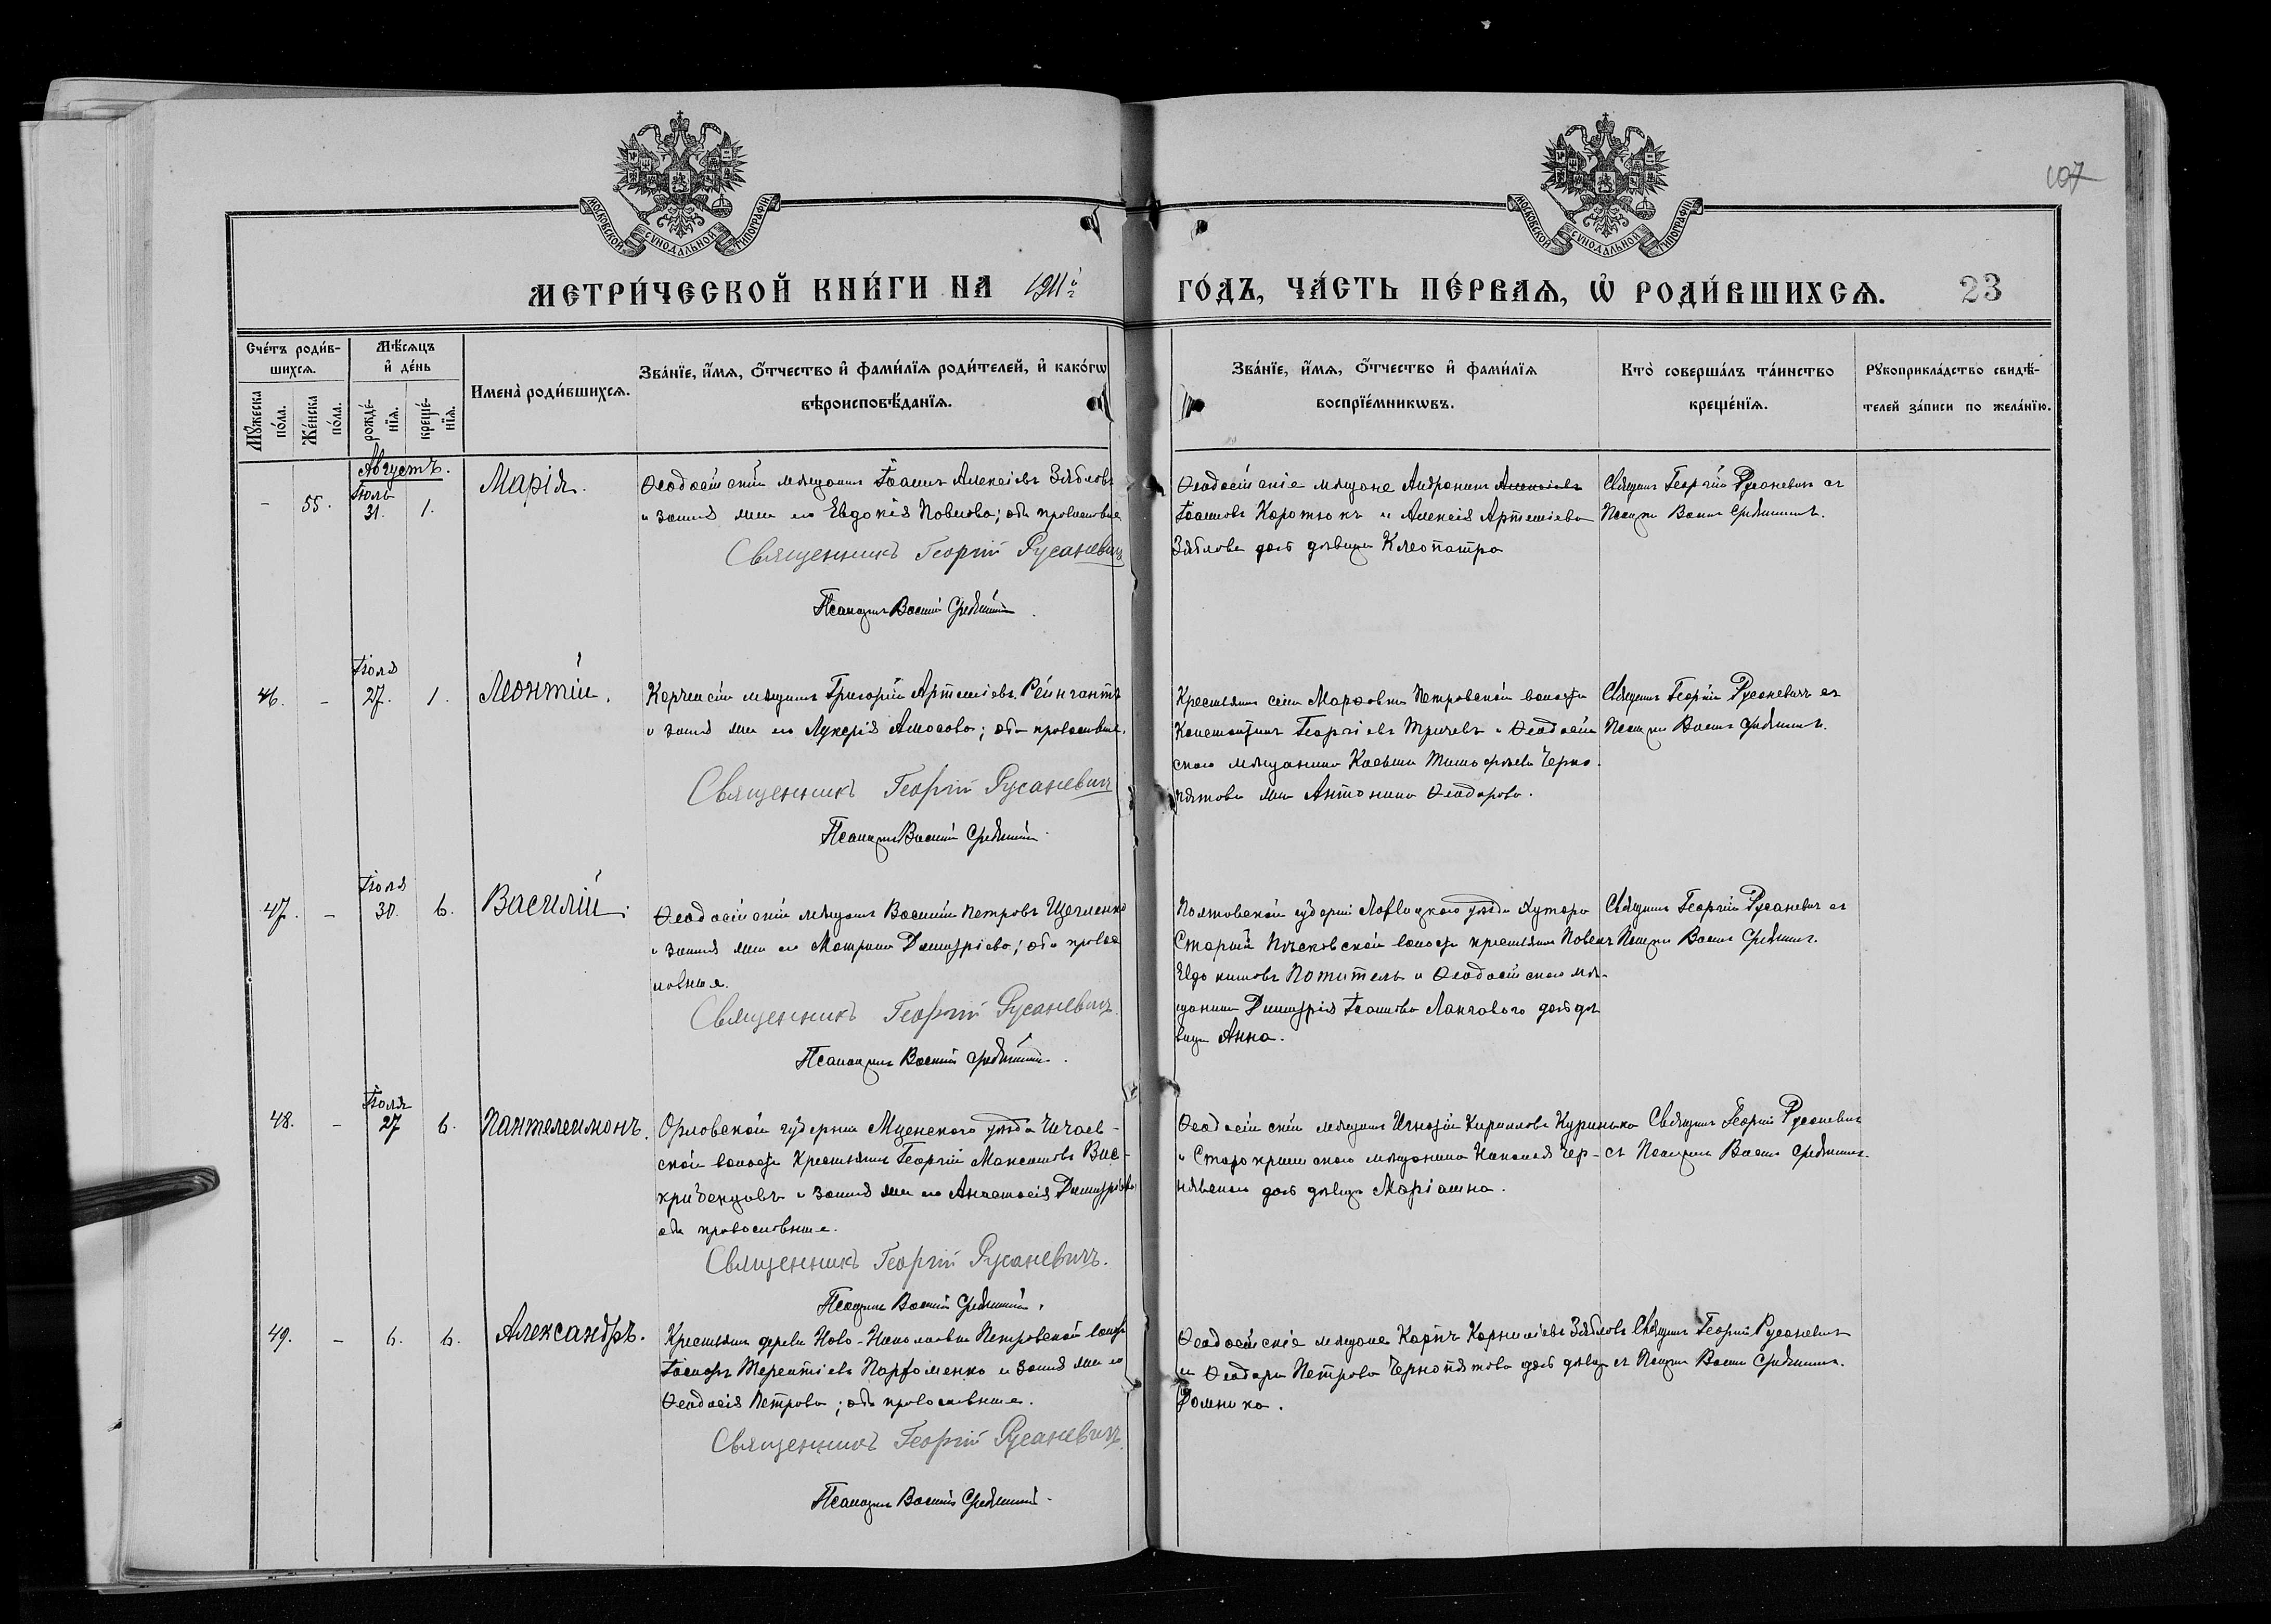 107
МОСКОВСКОЙ СѴНОДАЛЬНОЙ ТИПОГРАФІИ
МОСКОВСКОЙ СѴНОДАЛЬНОЙ ТИПОГРАФІИ
МЕТРИ́ЧЕСКОЙ КНИ́ГИ НА 1911й
ГО́ДЪ, ЧА́СТЬ ПЕ́РВАѦ, Ѡ҆ РОДИ́ВШИХСѦ.
23
Сче́тъ роди́в-
шихсѧ.
Мꙋ́жеска
по́ла.
Же́нска
по́ла.
Мѣ́сѧцъ
и҆ де́нь
рожде́-
нїѧ.
креще́-
нїѧ.
Имена̀ роди́вшихсѧ.
Зва́нїе, и҆́мѧ, ѻ҆́тчество и҆ фами́лїѧ роди́телей, и҆ како́гѡ
вѣроисповѣ́данїѧ.
Зва́нїе, и҆́мѧ, ѻ҆́тчество и҆ фами́лїѧ
воспрїе́мникѡвъ.
Кто̀ соверша́лъ та́инство
креще́нїѧ.
Рꙋкоприкла́дство свидѣ́-
телей за́писи по жела́нїю.
Августъ.
-
55.
Іюль
31.
1.
Марія.
Ѳеодосійскій мѣщанинъ Іоаннъ Алексіевъ Зяблов
и законная жена его Евдокія Павлова; оба православные
Священникъ Георгій Русаневичъ
Псаломщикъ Василій
Ѳеодосійскіе мѣщане Андроникъ Алексіевъ
Іоанновъ Коротюкъ и Алексія Артеміева
Зяблова дочь дѣвица Клеопатра
Священникъ Георгій Русаневичъ съ
Псаломщикомъ Василіемъ
46.
-
Іюля
27.
1.
Леонтій.
Керченскій мѣщанинъ Григорій Артеміевъ Рейнгантъ
и законная жена его Лукерія Амосова; оба православные.
Священникъ Георгій Русаневичъ
Псаломщикъ Василій
Крестьянинъ села Марфовки Петровской волости
Константинъ Георгіевъ и Ѳеодосій
скаго мѣщанина Касьяна Тимофѣева Черно
пятова жена Антонина Ѳеодорова.
Священникъ Георгій Русаневичъ съ
Псаломщикомъ Василіемъ
47.
-
Іюля
30.
6.
Василій.
Ѳеодосійскій мѣщанинъ Василій Петровъ Щегленко
и законная жена его Матрона Димитріева; оба правос
лавные.
Священникъ Георгій Русаневичъ.
Псаломщикъ Василій
Полтавской губерніи уѣзда хутора
Старый волости крестьянинъ Павелъ
Евдокимовъ и Ѳеодосійскаго мѣ-
щанина Димитрія Іоаннова дочь дѣ
вица Анна.
Священникъ Георгій Русаневичъ съ
Псаломщикомъ Василіемъ
48.
-
Іюля
27
6.
Пантелеимонъ.
Орловской губерніи Мценскаго уѣзда
ской волости Крестьянинъ Георгій Максимовъ Вос-
и законная жена его Анастасія Димитріева
оба православные.
Священникъ Георгій Русаневичъ.
Псаломщикъ Василій
Ѳеодосійскій мѣщанинъ Игнатій Кирилловъ
и Старокрымскаго мѣщанина Николая Чер-
нявскаго дочь дѣвица Маріанна.
Священникъ Георгій Русаневичъ
съ Псаломщикомъ Василіемъ
49.
-
6.
6.
Александръ.
Крестьянинъ деревни Ново-Николаевки Петровской волости
Іосифъ Терентіевъ Парфоменко и законная жена его
Ѳеодосія Петрова; оба православные.
Священникъ Георгій Русаневичъ.
Псаломщикъ Василій
Ѳеодосійскіе мѣщане Карпъ Корниліевъ Зябловъ
и Ѳеодора Петрова Чернопятова дочь дѣвица
Домника.
Священникъ Георгій Русаневичъ
съ Псаломщикомъ Василіемъ